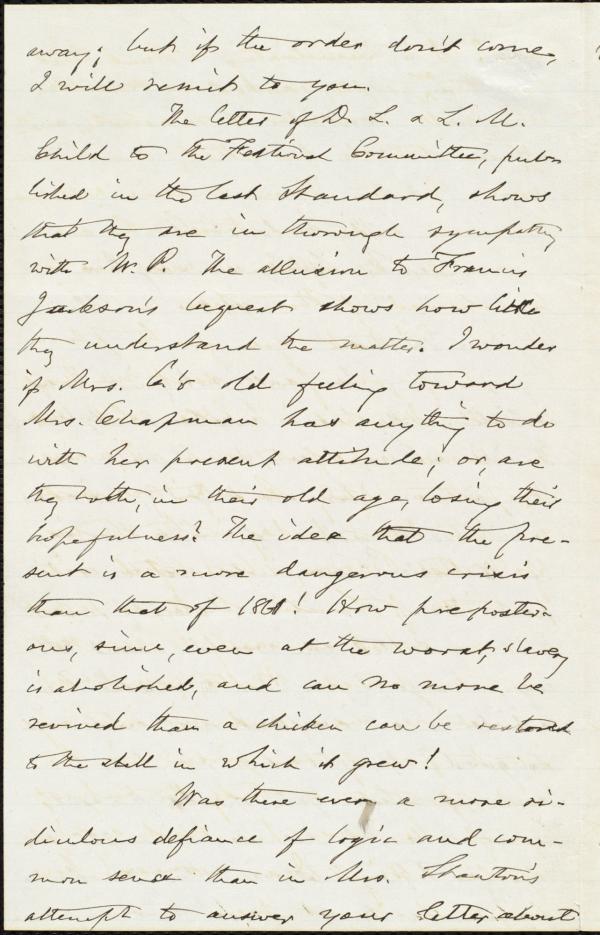 away; but if the order don't come,
I will remit to you.
The letter of D. L. & L. M.
Child to the Festival Committee, pub-
lished in the last Standard, shows
that they are in thorough sympathy
with W. P. The allusion to Francis
Jackson's bequest shows how little
they understand the matter. I wonder
if Mrs. C.'s old feeling toward
Mrs. Chapman has anything to do
with her present attitude; or, are
they both, in their old age, losing their
hopefulness? The idea that the pre-
sent is a more dangerous crisis
than that of 1861! How preposter-
ous, since, even at the worst, slavery
is abolished, and can no more be
revived than a chicken can be restored
to the shell in which it grew!
Was there ever a more ri-
diculous defiance of logic and com-
mon sense than in Mrs. Stanton's
attempt to answer your letter about